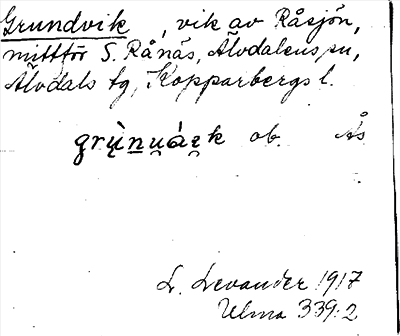 Grundvik, vik av Råsjön,
mittför S. Rånäs, Älvdalens sn,
Älvdals tg, Kopparbergs l.
ob. Ås
L. Levander 1917
Ulma 339:2